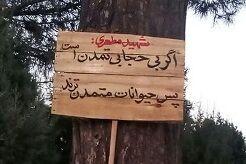 شهید مطهری:
اگر بی حجابی تمدن است
پس حیوانات متمدن ترند